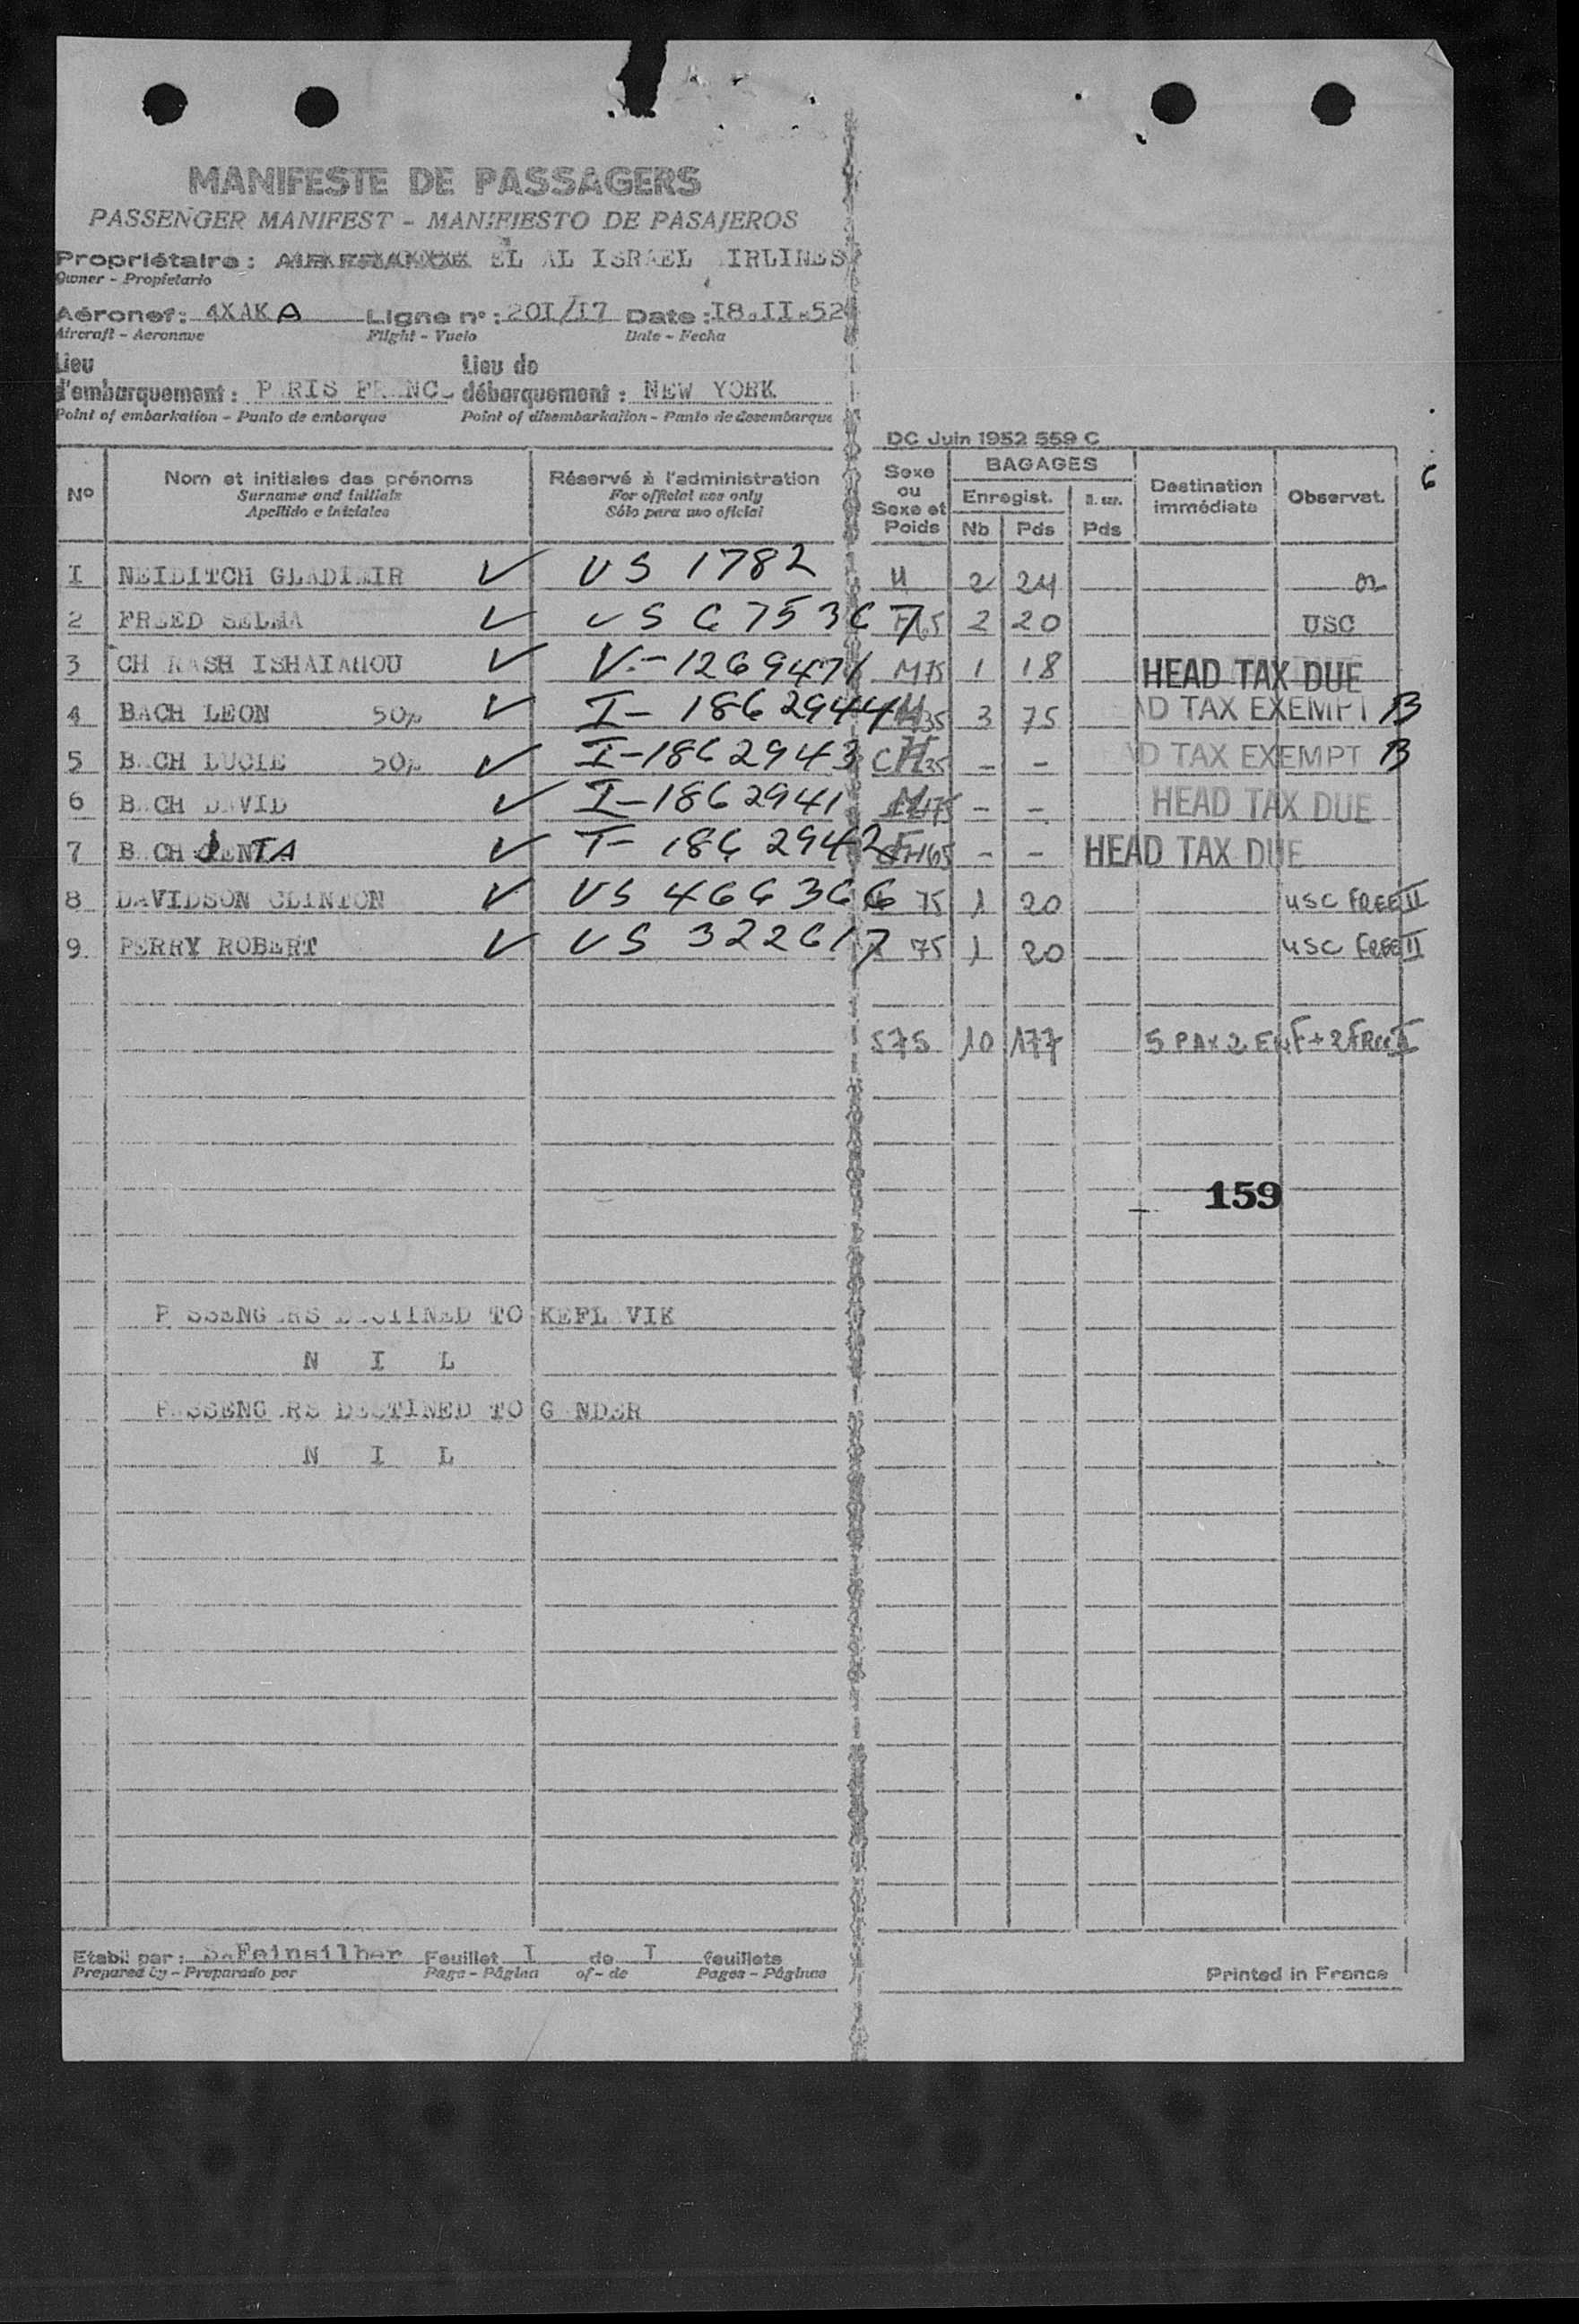 MANIFESTE DE PASSAGERS
PASSENGER MANIFEST - MANIFIESTO DE PASAJEROS
Propriétaire: EL AL ISRAEL IRLINES
Owner - Propietario
Aéronef: 4XAKA Ligne n°: 20I/I7 Date: I8.II.52
Aircraft - Aeronave Flight - Vuelo Date - Fecha
Lieu d'embarquement: P RIS FR NC Lieu de débarquement: NEW YORK
Point of embarkation - Punto de embarque Point of disembarkation - Punto de desembarque
DC Juin 1952 559 C
6
N° Nom et initiales des prénoms Réservé à l'administration Sexe ou Sexe et Poids BAGAGES Destination immédiate Observat.
Surname and initials For official use only Enregist.
Apellido e iniciales Sólo para uso oficial Nb Pds Pds
I NEIDITCH GLADIMIR ✓ US 1782 2 24
2 FREED SELMA ✓ US 675367 F65 2 20 USC
3 CH RASH ISHAIAHOU ✓ V-1269471 M75 1 18 HEAD TAX DUE
4 BACH LEON 50% ✓ I-1862944 35 3 75 AD TAX EXEMPT B
5 B CH LUCIE 50% ✓ I-1862943 35 - - AD TAX EXEMPT B
6 B CH D VID ✓ I-1862941 75 - - HEAD TAX DUE
7 B CH JENTA ✓ I-1862942 65 - - HEAD TAX DUE
8 DAVIDSON CLINTON ✓ US 466366 75 1 20 USC FREE II
9. PERRY ROBERT ✓ US 322617 75 1 20 USC FREE II
575 10 177 5 PAX 2 ENF + 2 FREE II
159
P SSENG RS DESTINED TO KEFL VIK
N I L
P SSENG RS DESTINED TO G NDER
N I L
Etabli par: S.Feinsilber Feuillet I de I feuillets
Prepared by - Preparado por Page - Página of - de Pages - Páginas
Printed in France